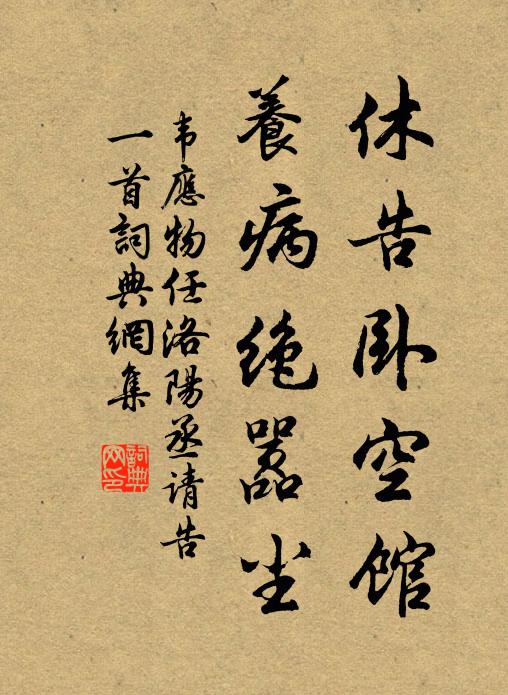 休告卧空馆
養病绝嚣尘
韦應物任洛陽丞请告
一首詞典網集
詞典
网印